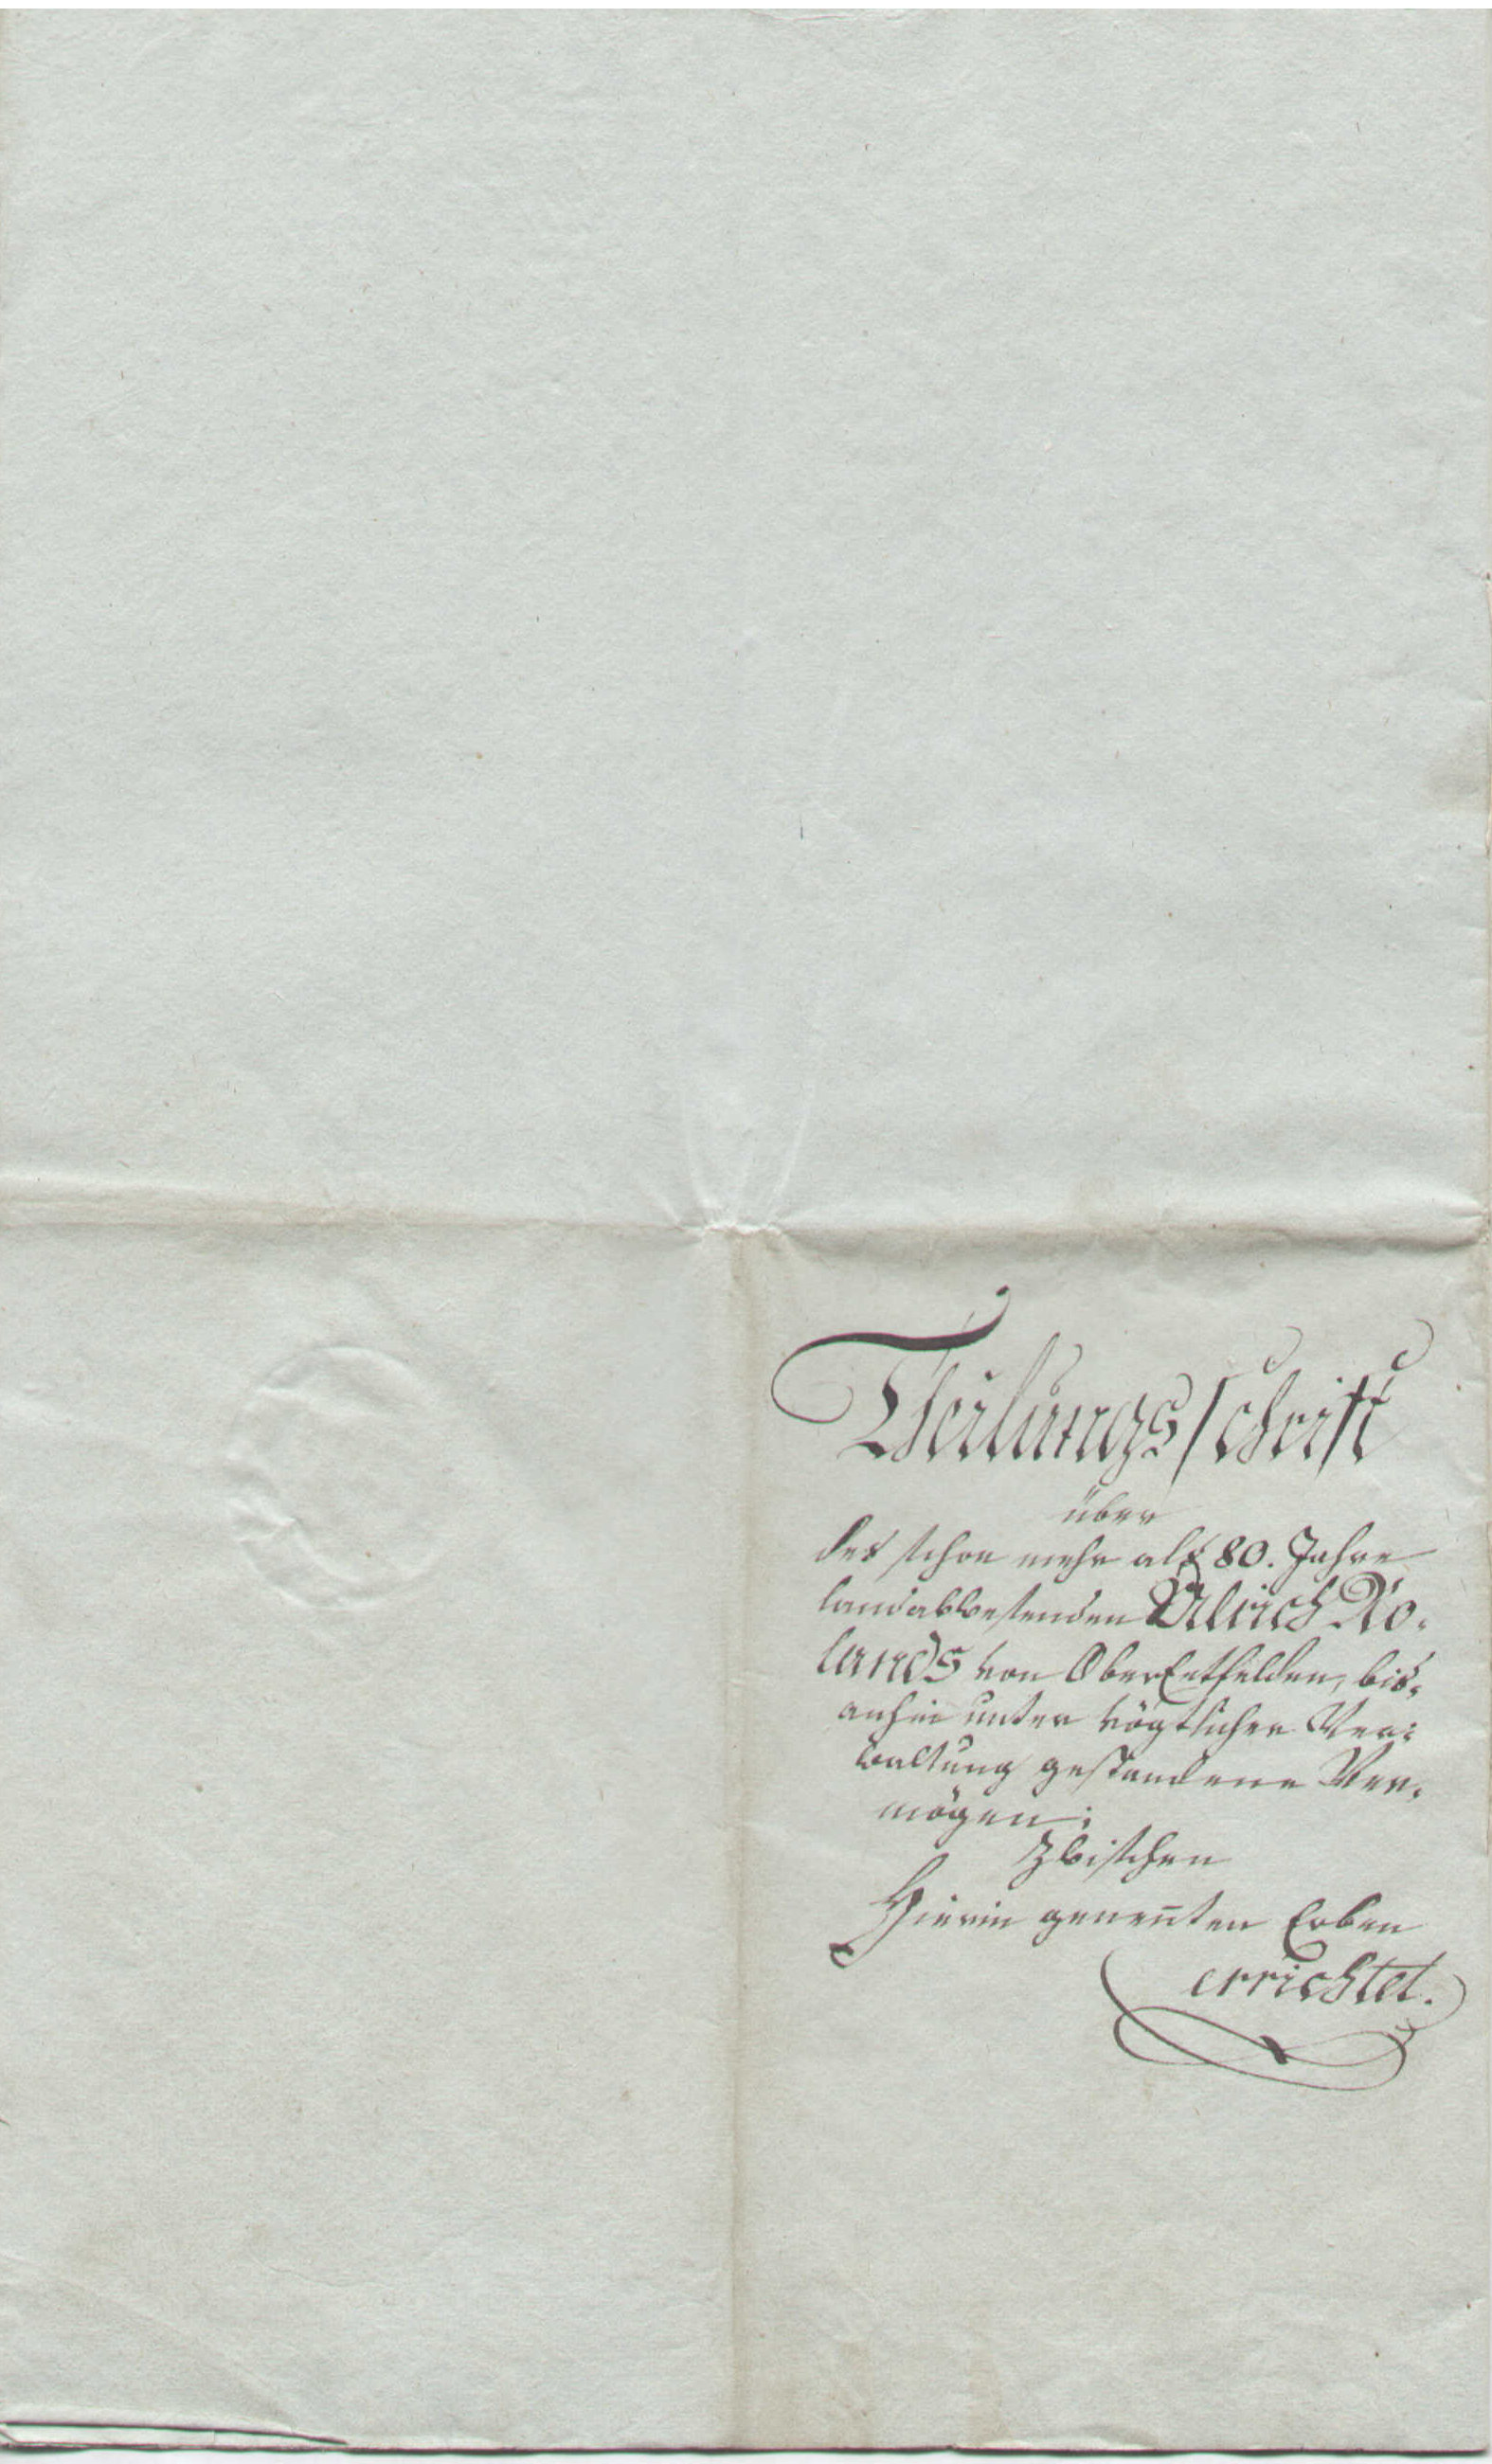 Theilungsschrift
über
des schon mehr als 80. Jahre
landabwesenden Ulrich Ro-
lands von OberEntfelden, bis-
anhin unter vögtlicher Ver-
waltung gestandene Ver-
mögen;
Zwischen
Hierin genen̄ten Erben
errichtet.